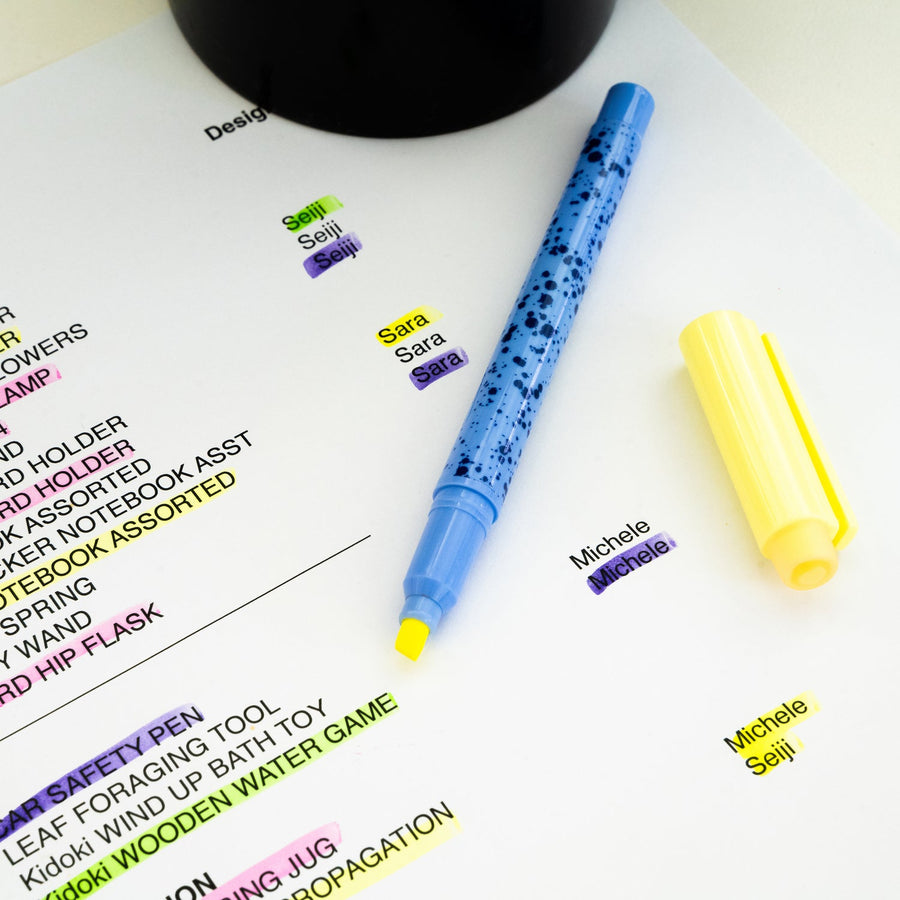 Seiji
Seiji
Seiji
Sara
Sara
Sara
LAMP
RD HOLDER
RD HOLDER
OK ASSORTED
CKER NOTEBOOK ASST
OTEBOOK ASSORTED
SPRING
Y WAND
RD HIP FLASK
Michele
Michele
CAR SAFETY PEN
LEAF FORAGING TOOL
Kidoki WIND UP BATH TOY
Kidoki WOODEN WATER GAME
Michele
Seiji
JUG
PROPAGATION